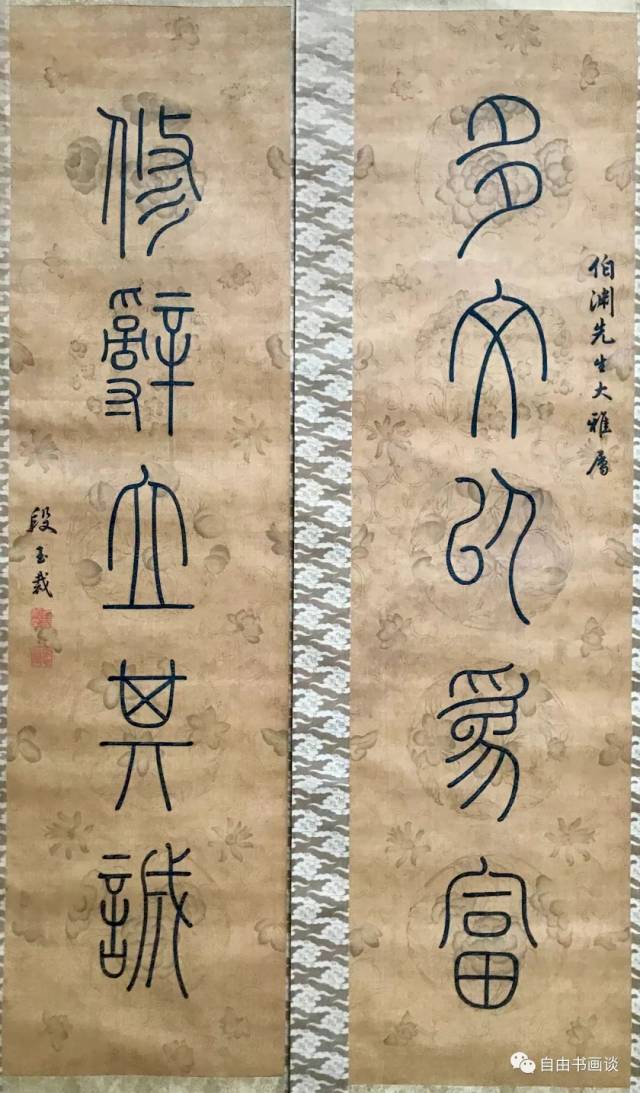 多文以爲富
伯淵先生大雅屬
修辭立其誠
段玉裁
自由书画谈